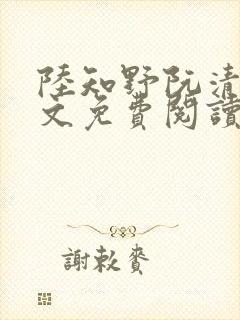 陸知野阮清
文免費閱讀
謝敕賚